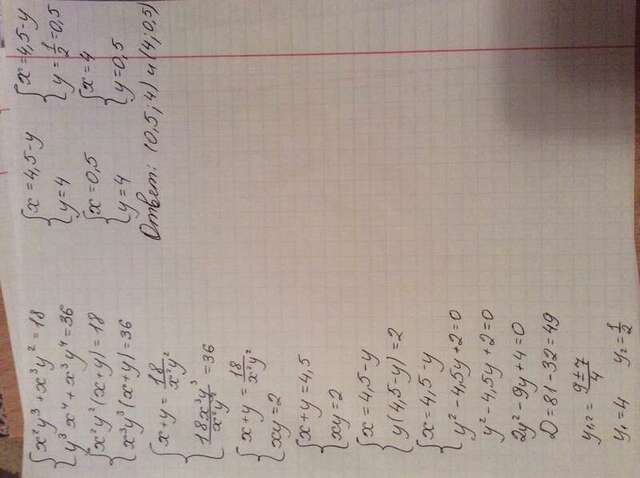 {x²y³ + x³y² = 18
{y³x⁴ + x³y⁴ = 36
{x²y²(x+y) = 18
{x³y³(x+y) = 36
{x+y = 18/x²y²
{18x³y³/x²y² = 36
{x+y = 18/x²y²
{xy = 2
{x+y = 4,5
{xy = 2
{x = 4,5-y
{y(4,5-y) = 2
{x = 4,5-y
{y² - 4,5y + 2 = 0
y² - 4,5y + 2 = 0
2y² - 9y + 4 = 0
D = 81 - 32 = 49
y₁,₂ = 9±7/4
y₁ = 4 y₂ = 1/2
{x = 4,5-y
{y = 4
{x = 0,5
{y = 4
{x = 4,5-y
{y = 1/2 = 0,5
{x = 4
{y = 0,5
Ответ: (0,5; 4) и (4; 0,5)